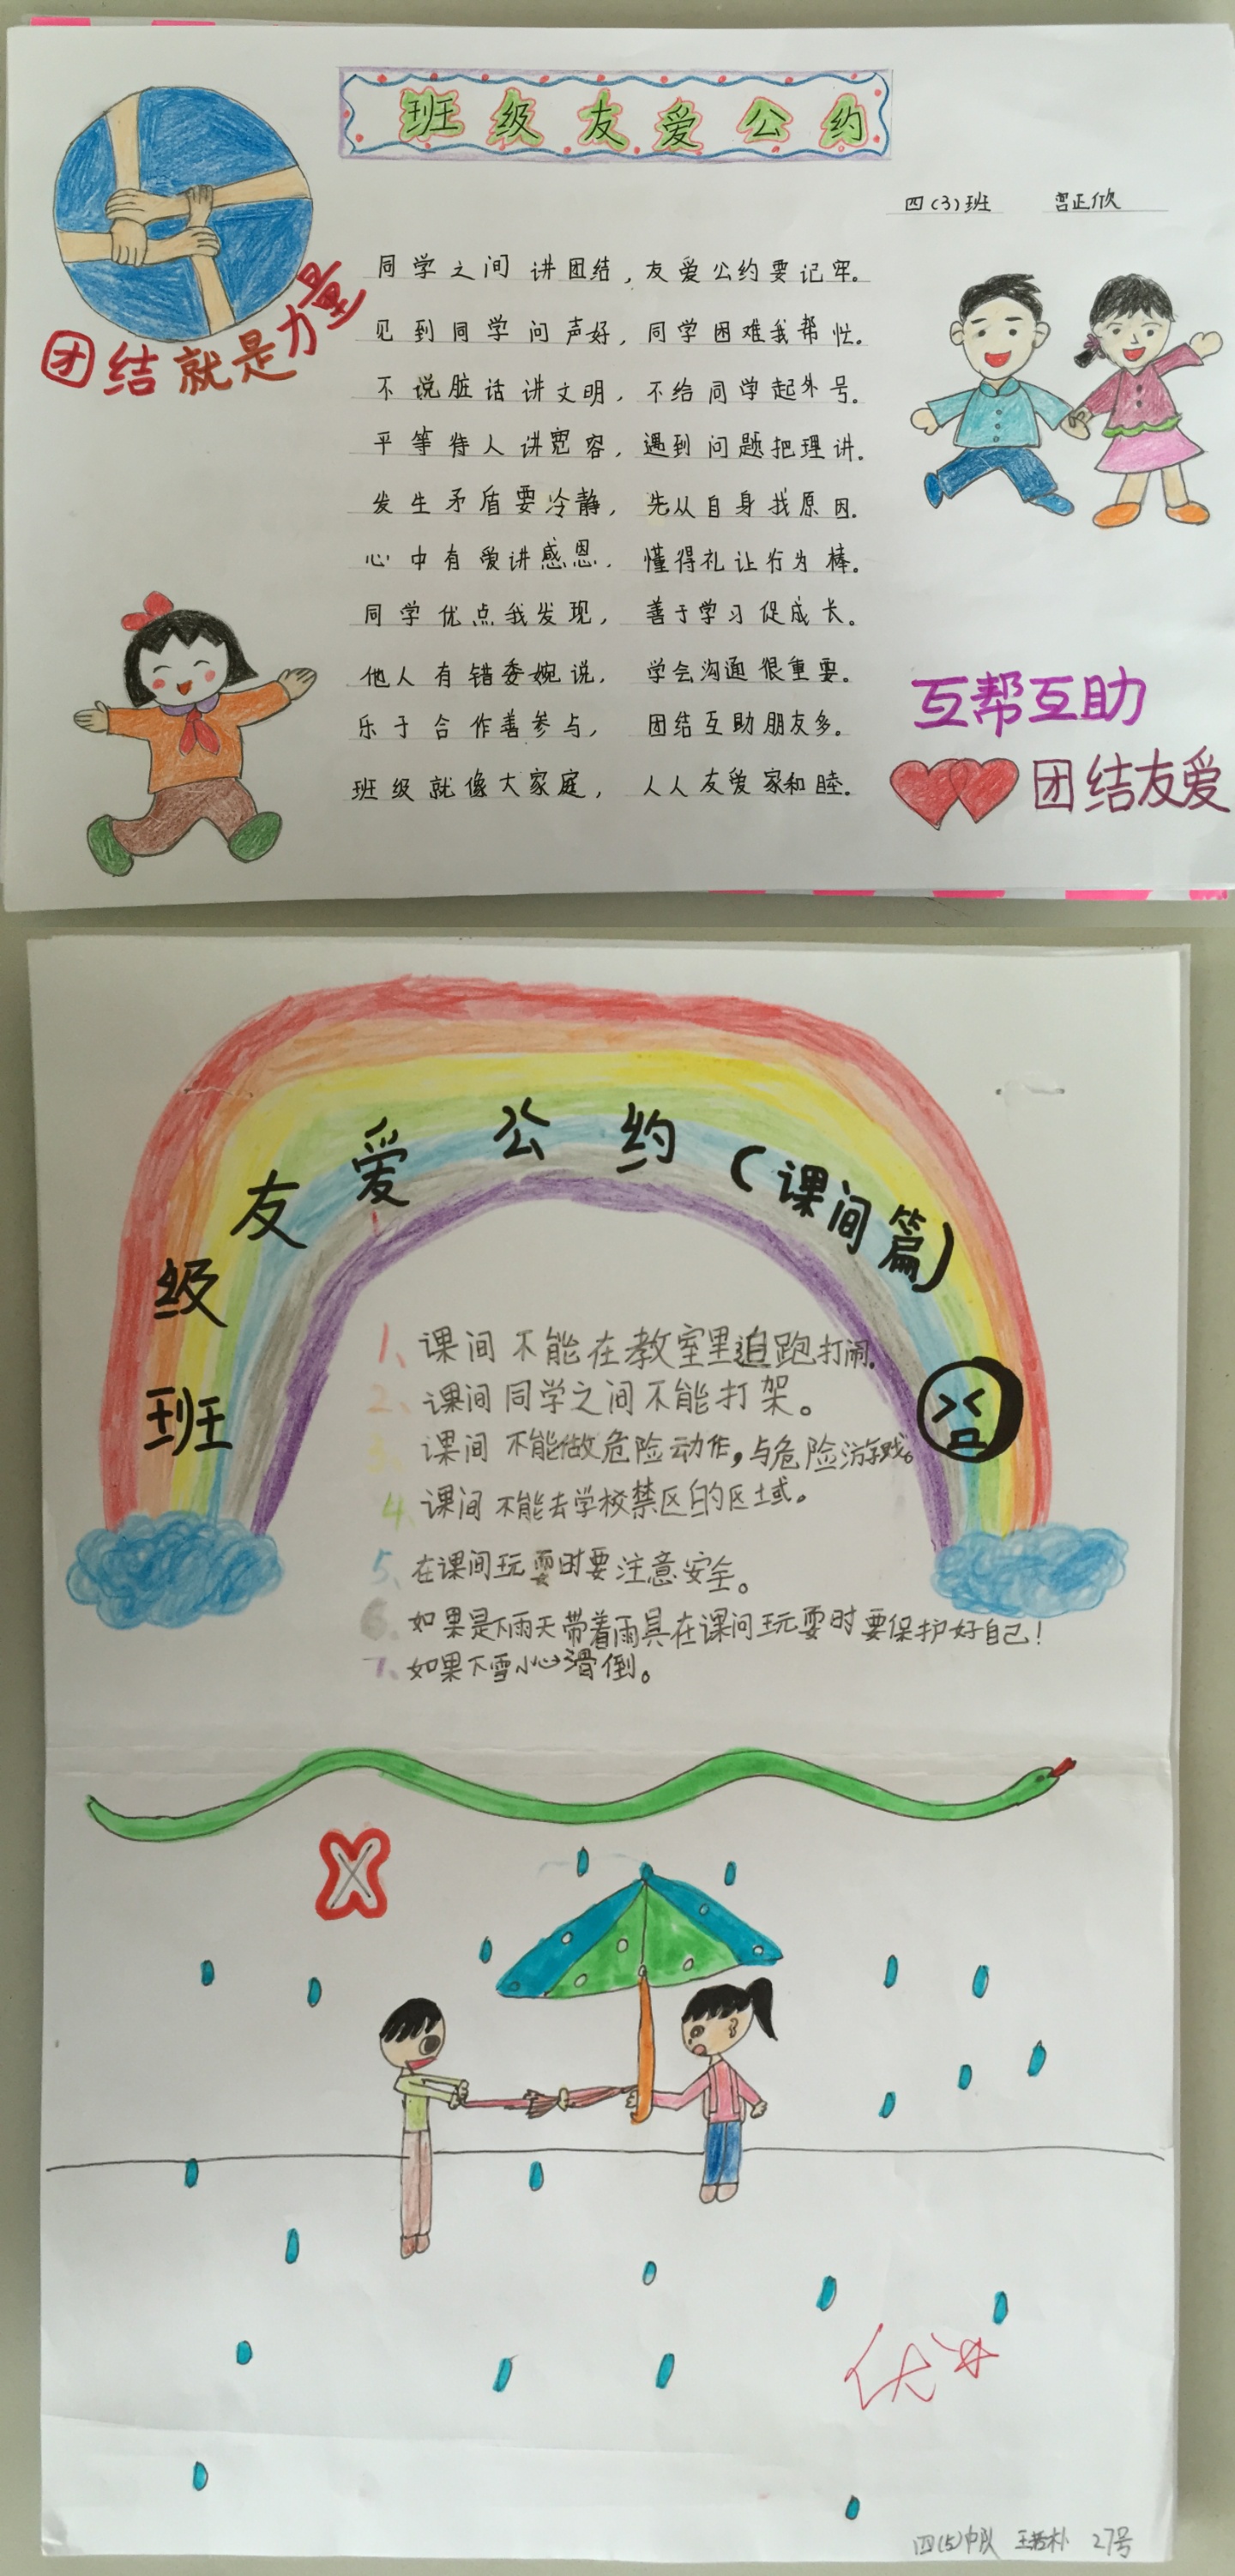 班级友爱公约
四(3)班 宫正欣
团结就是力量
同学之间讲团结，友爱公约要记牢。
见到同学问声好，同学困难我帮忙。
不说脏话讲文明，不给同学起外号。
平等待人讲宽容，遇到问题把理讲。
发生矛盾要冷静，先从自身找原因。
心中有爱讲感恩，懂得礼让行为棒。
同学优点我发现，善于学习促成长。
他人有错委婉说，学会沟通很重要。
乐于合作善参与，团结互助朋友多。
班级就像大家庭，人人友爱家和睦。
互帮互助
团结友爱
班级友爱公约(课间篇)
1、课间不能在教室里追跑打闹.
2、课间同学之间不能打架。
3、课间不能做危险动作，与危险游戏。
4、课间不能去学校禁区的区域。
5、在课间玩耍时要注意安全。
6.如果是下雨天带着雨具在课间玩耍时要保护好自己！
7、如果下雪小心滑倒。
X
优
四(5)中队 王 朴 27号